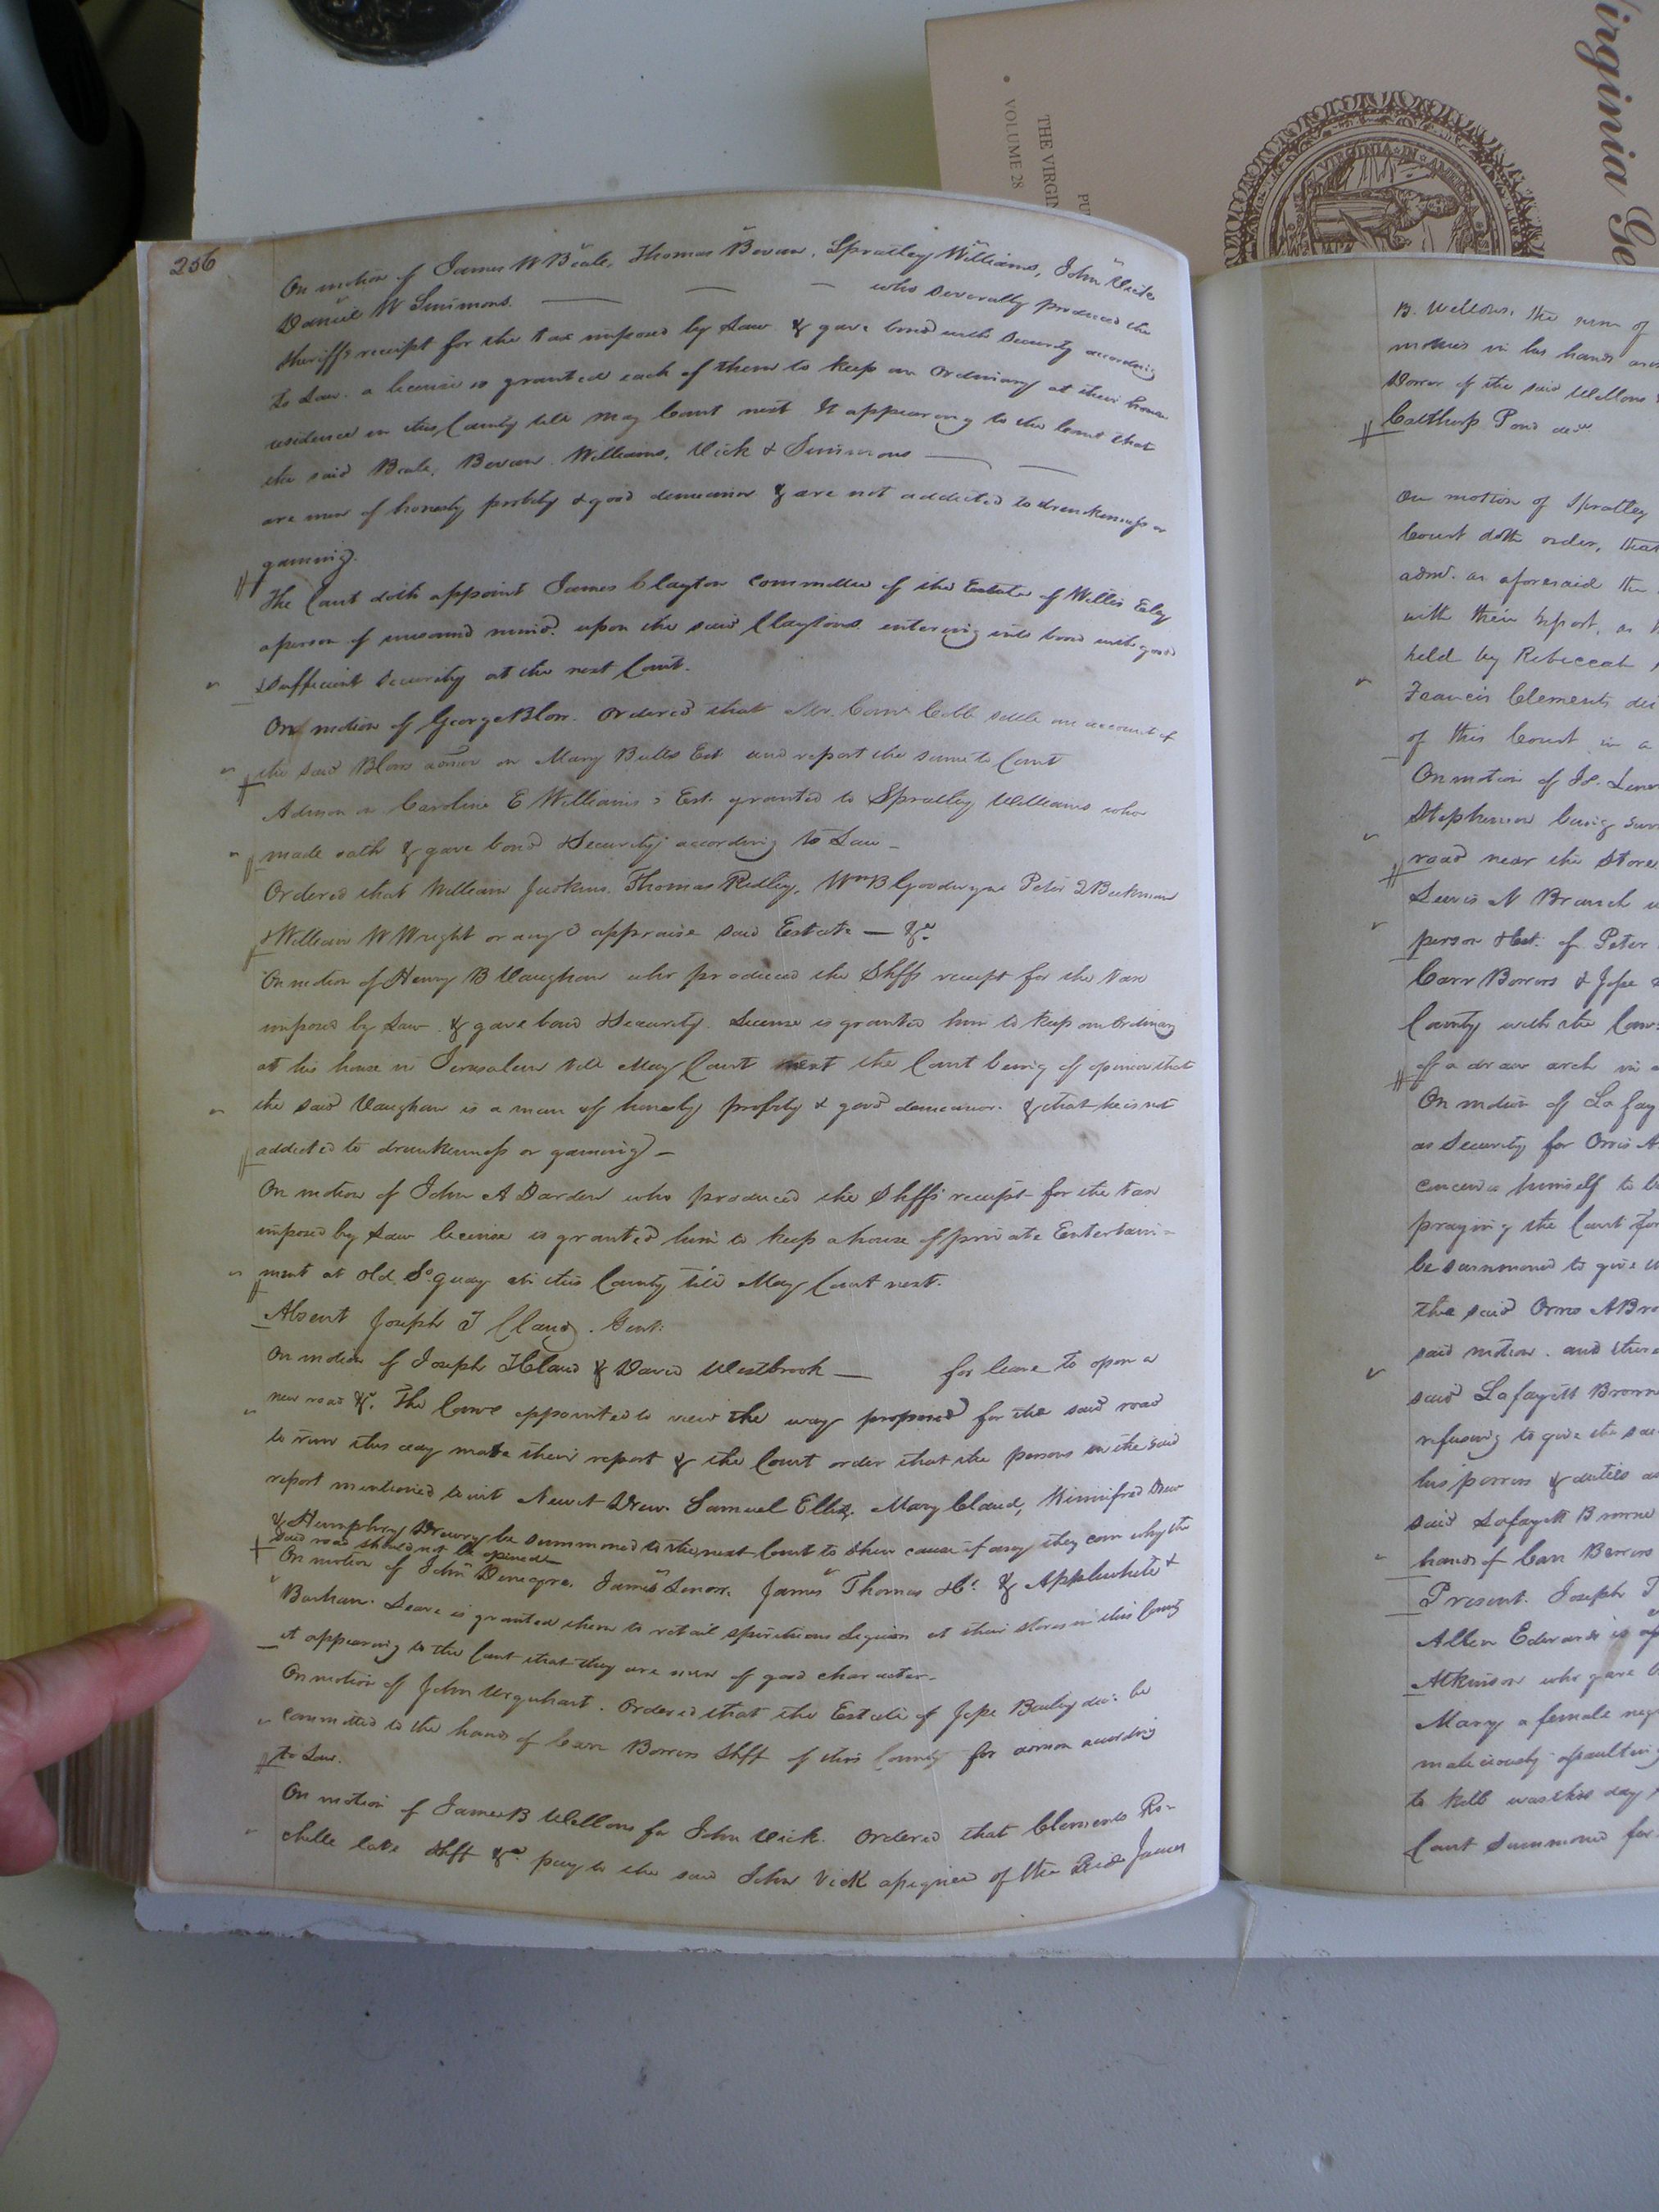 256
On motion of James W Beale, Thomas Bevan, Spratley Williams, John Vick
Daniel W Simmons. — — — who severally produced the
sheriffs receipt for the tax imposed by Law & gave bond with security according
to Law. a license is granted each of them to keep an Ordinary at their house
residence in this County till May Court next It appearing to the Court that
the said Beale, Bevan, Williams, Vick & Simmons — —
are men of honesty probity & good demeanor & are not addicted to drunkenness or
gaming.
The Court doth appoint James Clayton Committee of the Estate of Willis Eley
a person of unsound mind. upon the said Claytons entering into bond with good
& sufficient security at the next Court.
On motion of George Blow. Ordered that Mr. settle an account of
the said Blow admr on Mary Butts Est and report the same to Court
Admon on Caroline E Williams's Est. granted to Spratley Williams who
made oath & gave bond & Security according to Law —
Ordered that William Judkins, Thomas Ridley, Wm B Goodwyn Peter
& William W Wright or any 3 appraise said Estate — &c.
On motion of Henry B Vaughan who produced the Shffs receipt for the tax
imposed by Law & gave bond & Security. License is granted him to keep an Ordinary
at his house in Jerusalem till May Court next the Court being of opinion that
the said Vaughan is a man of honesty probity & good demeanor. & that he is not
addicted to drunkenness or gaming —
On motion of John A Darden who produced the Shffs receipt for the tax
imposed by Law license is granted him to keep a house of private Entertain-
ment at Old So. quay in this County till May Court next.
Absent Joseph T Claud. Gent:
On motion of Joseph T Claud & David Westbrook — for leave to open a
new road &c. The Comrs appointed to view the way proposed for the said road
to run this day made their report & the Court order that the persons in the said
report mentioned to wit Newit Drew Samuel Ellis, Mary Claud, Winnifred Drew
& Humphrey Drewry be summoned to the next Court to shew cause if any they can why the
said road should not be opened
On motion of John Denegre, James Lenow. James Thomas & Co. & Applewhite &
Barham. Leave is granted them to retail spirituous liquors at their stores in this County
it appearing to the Court that they are men of good character.
On motion of John Urquhart. Ordered that the Estate of Jesse Bailey decd. be
committed to the hands of Carr Bowers Shff of this County for admon according
to Law.
On motion of James B Wellons for John Vick. Ordered that Clements Ro-
chelle late Shff &c. pay to the said John Vick assignee of the said James
B. Wellons, the sum of
monies in his hands
of the said Wellons
Calthorp Pond decd.
On motion of Spratley
Court doth order, that
admr. as aforesaid the
with their report, as
held by Rebeccah
Francis Clements
of this Court in a
On motion of
Stephenson being
road near the Store
Lewis N Branch
person & Est. of Peter
Carr Bowers & Jesse
County with the
of a draw arch in
On motion of Lafay
as Security for
himself to
praying the Court for
be summoned to give
the said
said motion. and
said Lafayett Browne
refusing to give the
his powers & duties as
said Lafayett Browne
hands of Carr Bowers
Present. Joseph T
Allen Edwards is
Atkinson who gave
Mary a female neg
maliciously assaulting
to kill was this day
Court Summoned for
irginia Ge
PU
THE VIRGIN
• VOLUME 28
VIRGINIA IN AMER